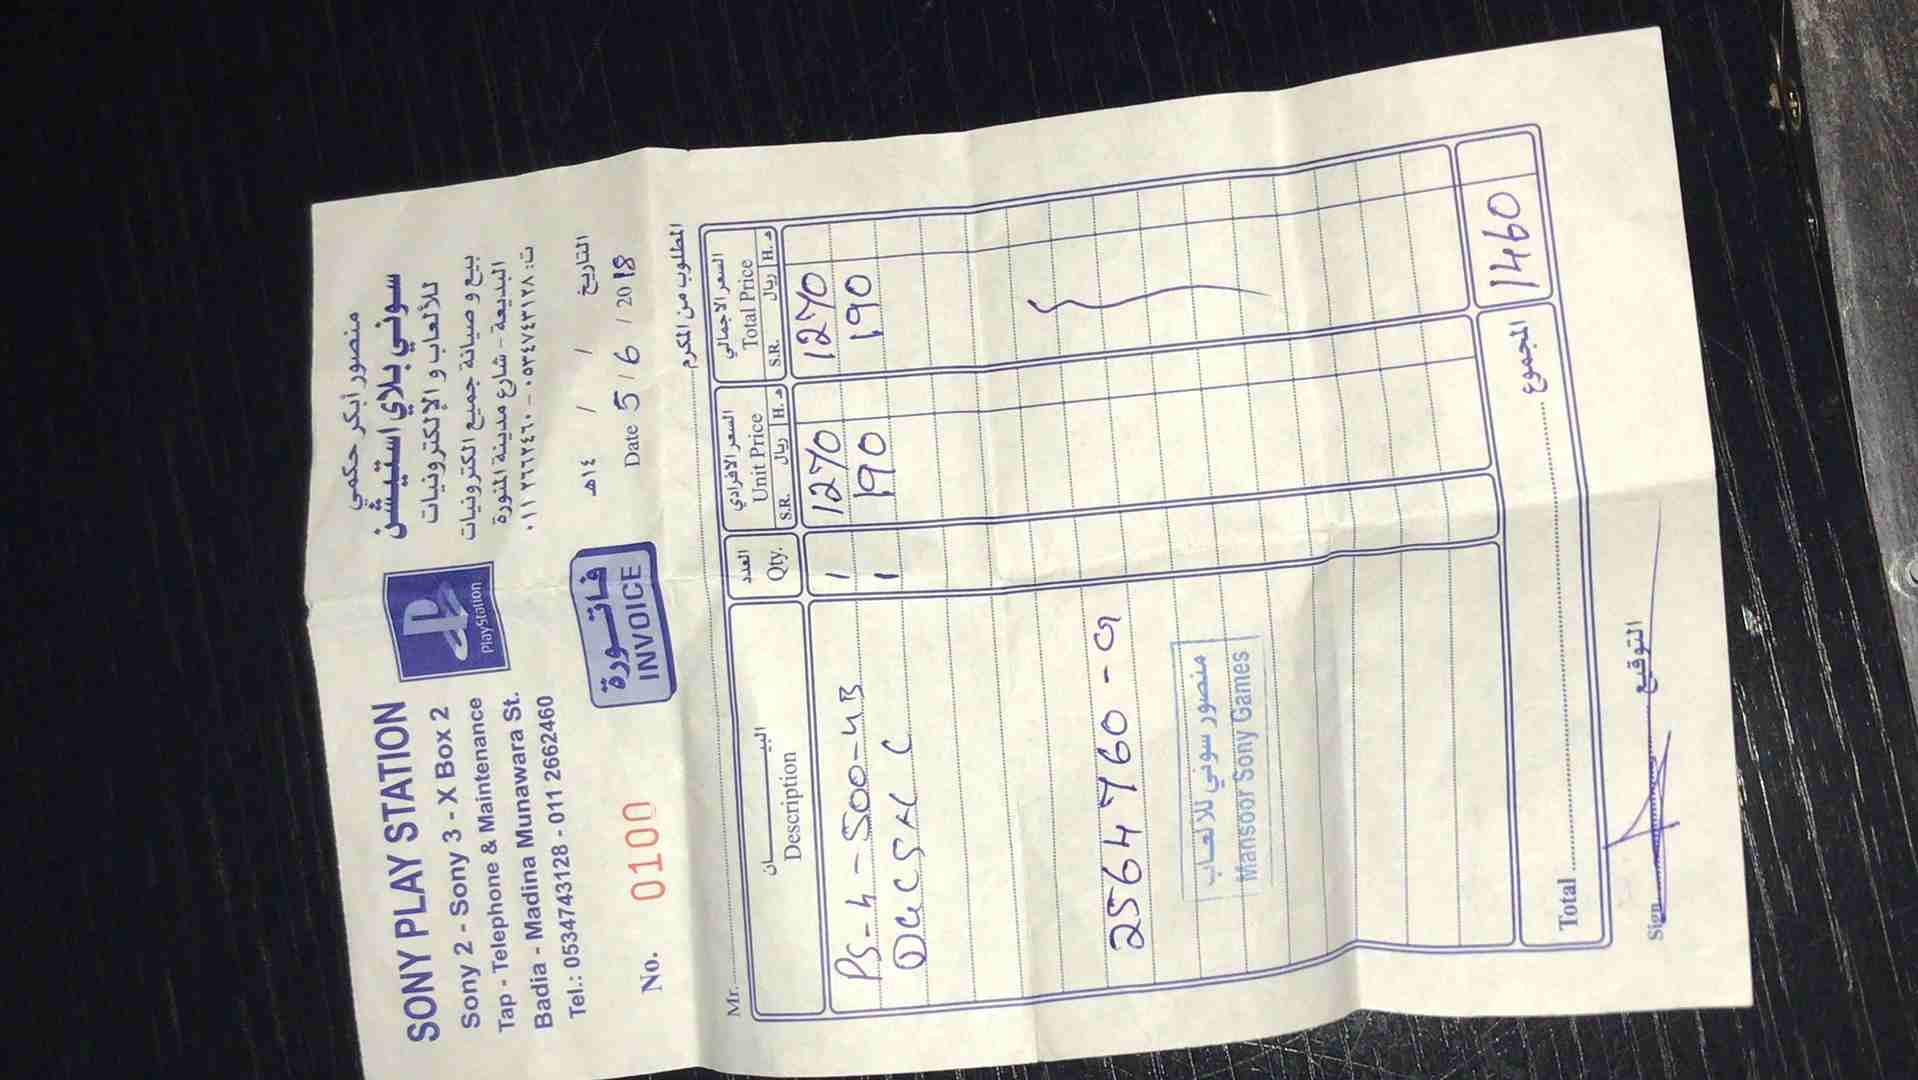 SONY PLAY STATION
Sony 2 - Sony 3 - X Box 2
Tap - Telephone & Maintenance
Badia - Madina Munawara St.
Tel.: 0534743128 - 011 2662460
PlayStation
منصور أبكر حكمي
سوني بلاي استيشن
للألعاب و الإلكترونيات
بيع و صيانة جميع الكترونيات
البديعة - شارع مدينة المنورة
ت: ٠٥٣٤٧٤٣١٢٨ - ٠١١ ٢٦٦٢٤٦٠
No. 0100
فاتورة
INVOICE
التاريخ / / ١٤هـ
Date 5 / 6 / 2018
Mr. المطلوب من المكرم
البيــــــان العدد السعر الافرادي السعر الاجمالي
Description Qty. Unit Price Total Price
S.R. ريال H. هـ S.R. ريال H. هـ
PS-4-500-4B 1 1270 1270
1 190 190
2564760-G
منصور سوني للألعاب
Mansoor Sony Games
Total المجموع 1460
Sign التوقيع